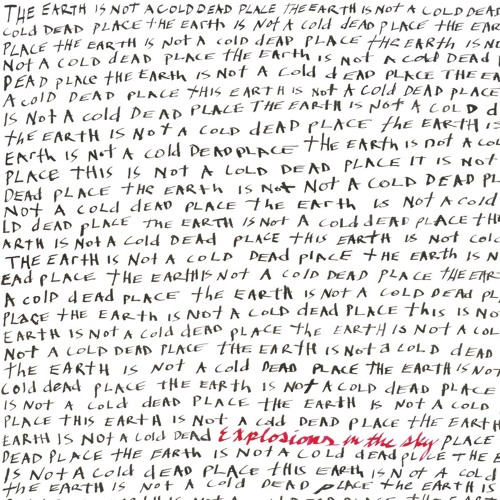 THE EARTH IS NOT A COLD DEAD PLACE THE EARTH IS NOT A COLD DEAD
COLD DEAD PLACE THE EARTH IS NOT A COLD DEAD PLACE THE EAR
PLACE THE EARTH IS NOT A COLD DEAD PLACE THE EARTH IS NO
NOT A COLD DEAD PLACE THE EARTH IS NOT A COLD DEAD
DEAD PLACE THE EARTH IS NOT A COLD DEAD PLACE THE EA
A COLD DEAD PLACE THIS EARTH IS NOT A COLD DEAD PLACE
IS NOT A COLD DEAD PLACE THE EARTH IS NOT A COLD D
THE EARTH IS NOT A COLD DEAD PLACE THE EARTH IS
EARTH IS NOT A COLD DEAD PLACE THE EARTH IS NOT A COL
PLACE THIS IS NOT A COLD DEAD PLACE IT IS NOT
DEAD PLACE THE EARTH IS NOT NOT A COLD DEAD PL
NOT A COLD DEAD PLACE THE EARTH IS NOT A COLD
LD DEAD PLACE THE EARTH IS NOT A COLD DEAD PLACE THE
ARTH IS NOT A COLD DEAD PLACE THIS EARTH IS NOT COL
THE EARTH IS NOT A COLD DEAD PLACE THE EARTH IS N
EAD PLACE THE EARTH IS NOT A COLD DEAD PLACE THE EAR
A COLD DEAD PLACE THE EARTH IS NOT A COLD DEAD PL
PLACE THE EARTH IS NOT A COLD DEAD PLACE THIS IS NO
EARTH IS NOT A COLD DEAD PLACE THE EARTH IS NOT A COL
NOT A COLD DEAD PLACE THE EARTH IS NOT A COLD DEAD
THE EARTH IS NOT A COLD DEAD PLACE THE EARTH IS NOT
COLD DEAD PLACE THE EARTH IS NOT A COLD DEAD PLACE
IS NOT A COLD DEAD PLACE THE EARTH IS NOT A COLD
PLACE THIS EARTH IS NOT A COLD DEAD PLACE THE EARTH
EARTH IS NOT A COLD DEAD Explosions in the sky PLACE
DEAD PLACE THE EARTH IS NOT A COLD DEAD PLACE THE
IS NOT A COLD DEAD PLACE THIS EARTH IS NOT A COLD
THE EARTH IS NOT A COLD DEAD PLACE THE EARTH IS